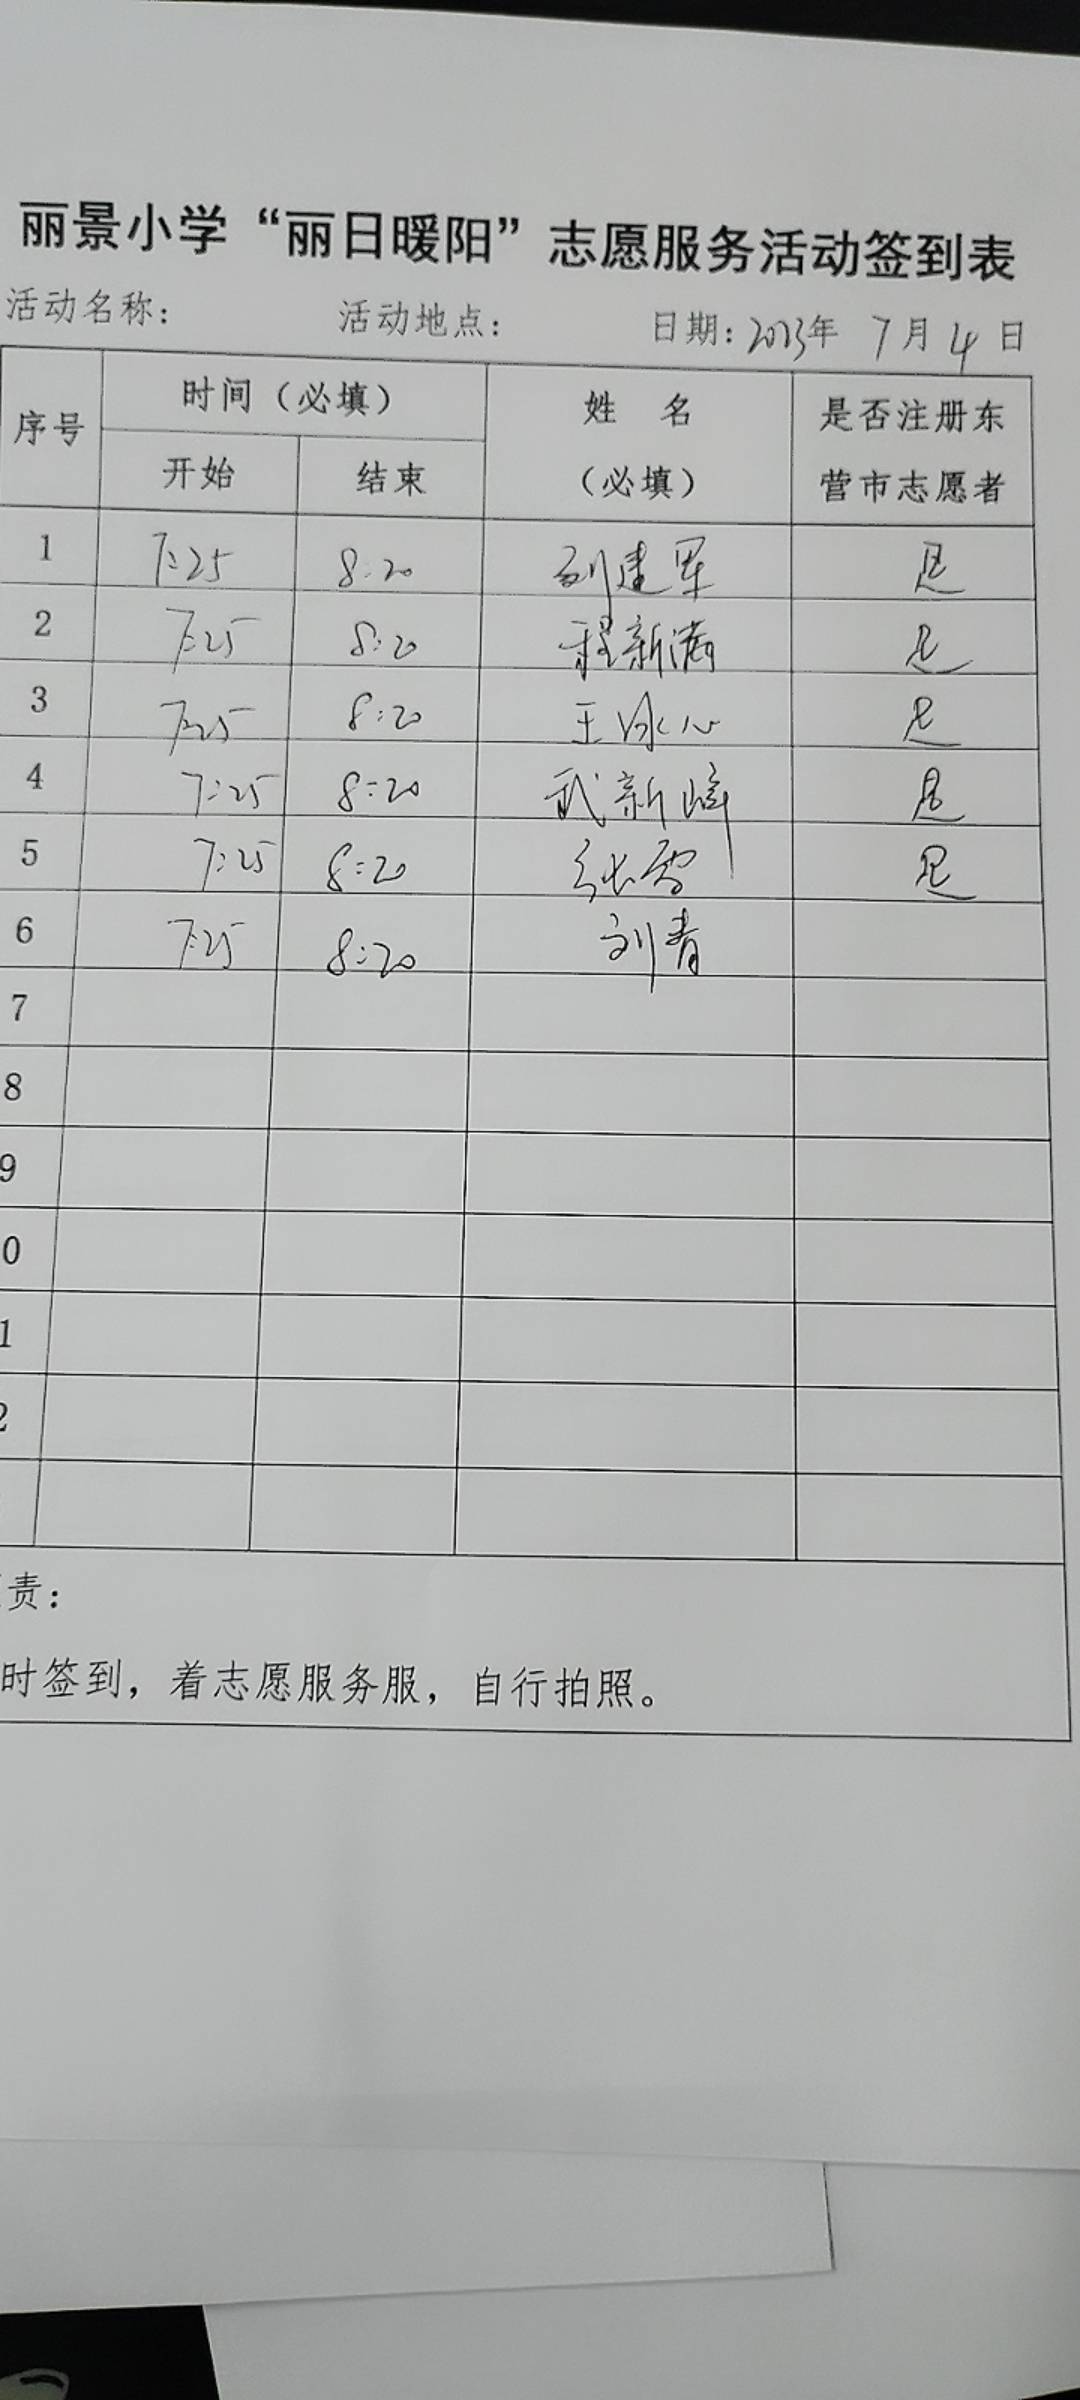 丽景小学“丽日暖阳”志愿服务活动签到表
活动名称: 活动地点: 日期: 2023年 7月 4日
序号 时间（必填） 姓 名（必填） 是否注册东营市志愿者
开始 结束
1 7:25 8:20 刘建军 是
2 7:25 8:20 程新满 是
3 7:25 8:20 王冰心 是
4 7:25 8:20 武新峰 是
5 7:25 8:20 张雪 是
6 7:25 8:20 刘青
7
8
9
0
1
2
责:
时签到，着志愿服务服，自行拍照。